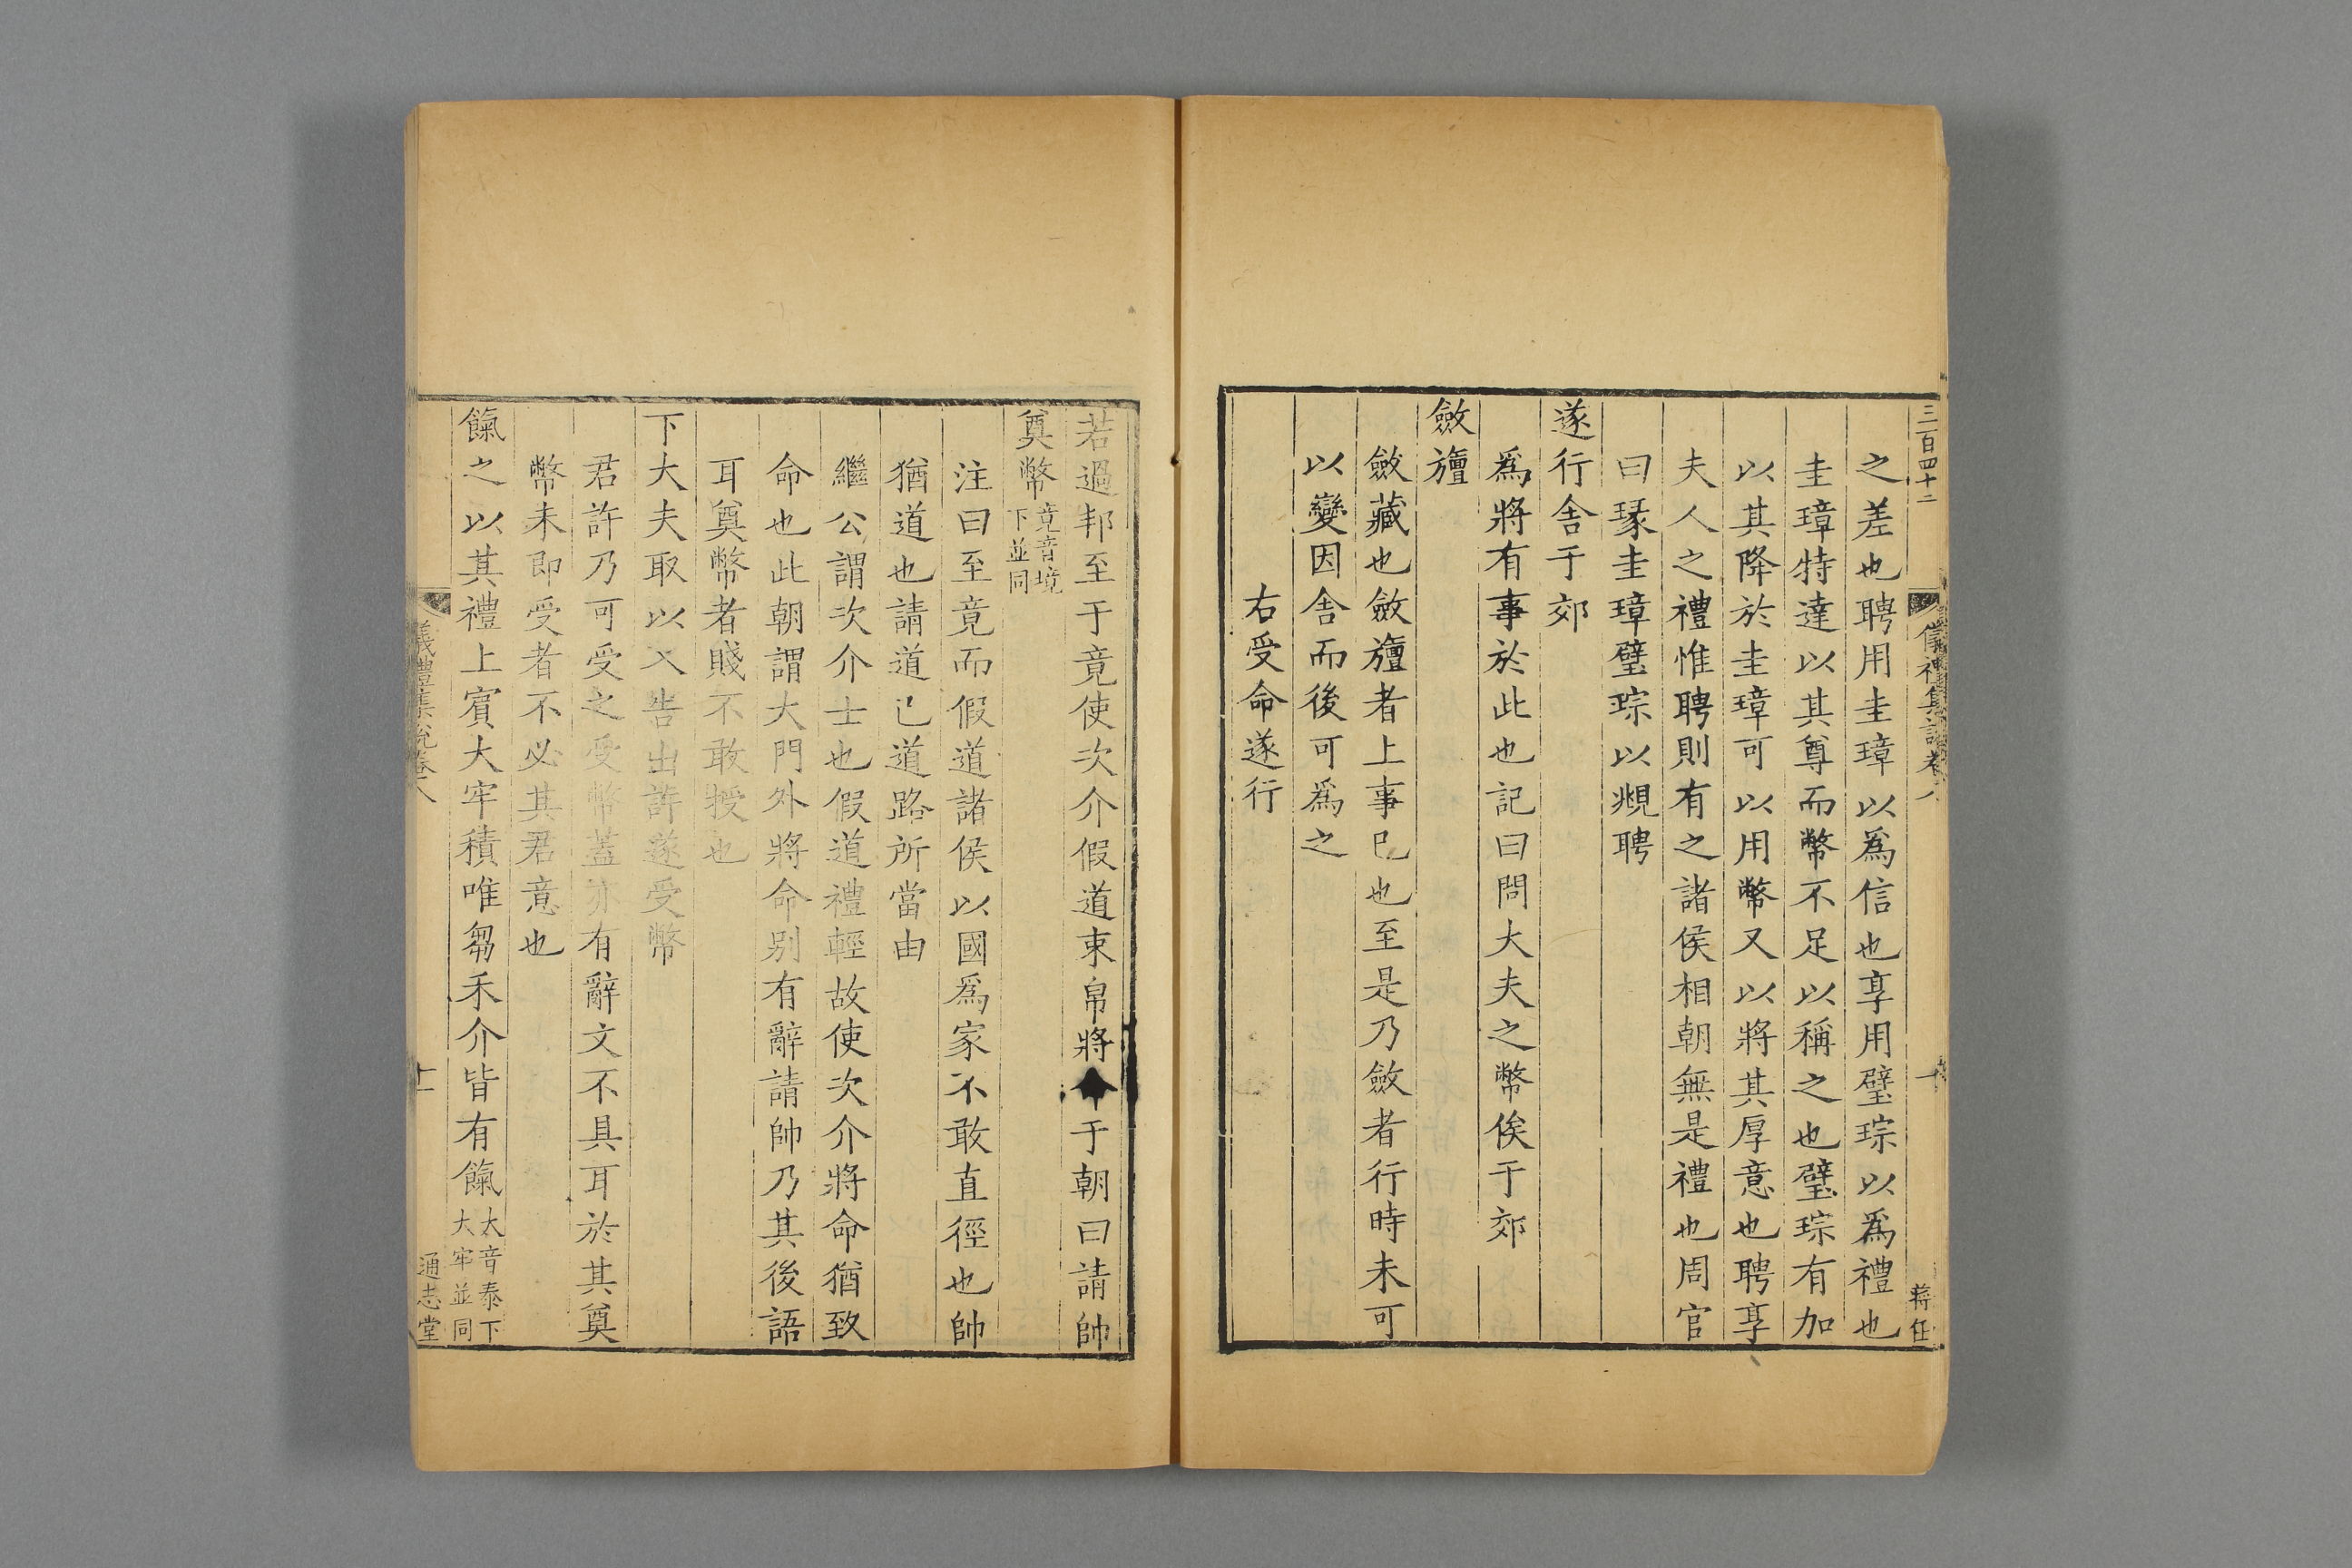 三百四十二
儀禮集說卷八
蔣任
之差也聘用圭璋以爲信也享用璧琮以爲禮也
圭璋特達以其尊而幣不足以稱之也璧琮有加
以其降於圭璋可以用幣又以將其厚意也聘享
夫人之禮惟聘則有之諸侯相朝無是禮也周官
曰瑑圭璋璧琮以覜聘
遂行舍于郊
爲將有事於此也記曰問大夫之幣俟于郊
斂旜
斂藏也斂旜者上事已也至是乃斂者行時未可
以變因舍而後可爲之
右受命遂行
若過邦至于竟使次介假道束帛將命于朝曰請帥
奠幣竟音境下並同
注曰至竟而假道諸侯以國爲家不敢直徑也帥
猶道也請道己道路所當由
繼公謂次介士也假道禮輕故使次介將命猶致
命也此朝謂大門外將命別有辭請帥乃其後語
耳奠幣者賤不敢授也
下大夫取以入告出許遂受幣
君許乃可受之受幣蓋亦有辭文不具耳於其奠
幣未即受者不必其君意也
餼之以其禮上賓大牢積唯芻禾介皆有餼大音泰下大牢並同
儀禮集說卷八
十一
通志堂